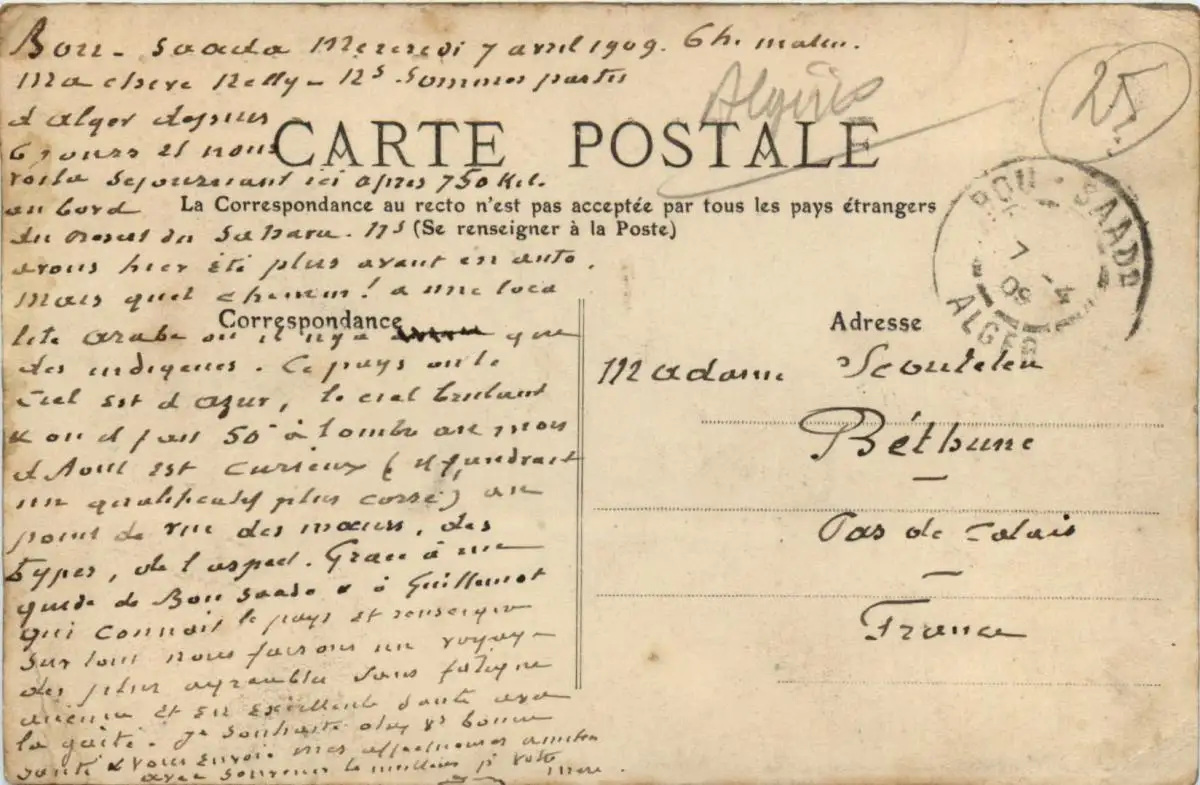 Bou-Saada Mercredi 7 avril 1909. 6h. matin.
Ma chère Nelly - Ns sommes partis
d'Alger depuis
6 jours et nous
voila séjournant ici après 750 Kil.
au bord
du désert du Sahara. Ns
avons hier été plus avant en auto.
Mais quel chemin! a une loca
lité arabe ou il n'y a que
des indigènes. Ce pays où le
Ciel est d'azur, le ciel brulant
& on d 50° à l'ombre au mois
d'Aout est curieux (il faudrait
un qualificatif plus corsé) au
point de vue des mœurs, des
types, de l'aspect. Grace à un
guide de Bou Saada & à Guillemot
qui connait le pays et renseigne
sur tout nous faisons un voyage
des plus agréables sans fatigue
aucune et en excellente santé avec
la gaité. Je souhaite chez vs bonne
santé & vous envoie mes affectueuses amitiés
avec souvenir le meilleur pr votre mère.
Algérie
25
CARTE POSTALE
La Correspondance au recto n'est pas acceptée par tous les pays étrangers
(Se renseigner à la Poste)
BOU-SAADA
7 -4
09
ALGER
Correspondance
Adresse
Madame Scouteten
Béthune
Pas de Calais
France